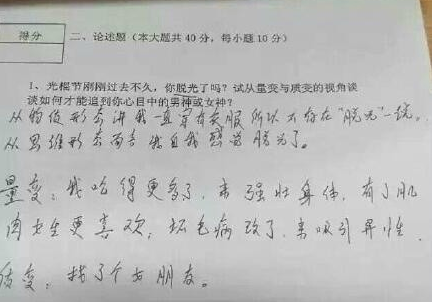 得分
二、论述题（本大题共40分，每小题10分）
1、光棍节刚刚过去不久，你脱光了吗？试从量变与质变的视角谈
谈如何才能追到你心目中的男神或女神？
从物质形态讲我一直穿有衣服所以不存在“脱光”一说。
从思维形态而言我自我感觉脱光了。
量变：我吃得更多了，来强壮身体，有了肌
肉女生更喜欢，坏毛病改了，来吸引异性。
质变：找了个女朋友。